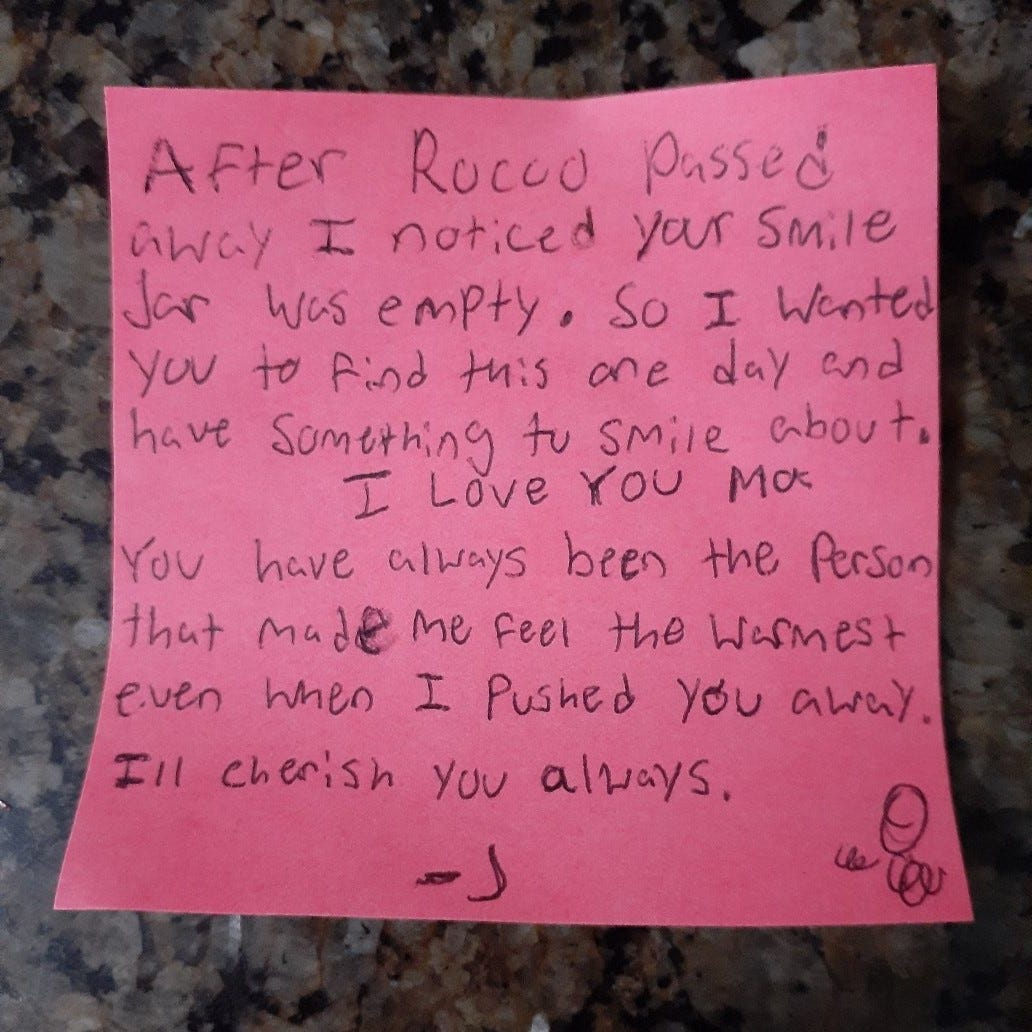 After Rocco Passed
away I noticed your smile
Jar was empty. So I wanted
you to find this one day and
have something to smile about.
I Love You Ma
You have always been the Person
that made me feel the warmest
even when I Pushed you away.
I'll cherish you always.
- J